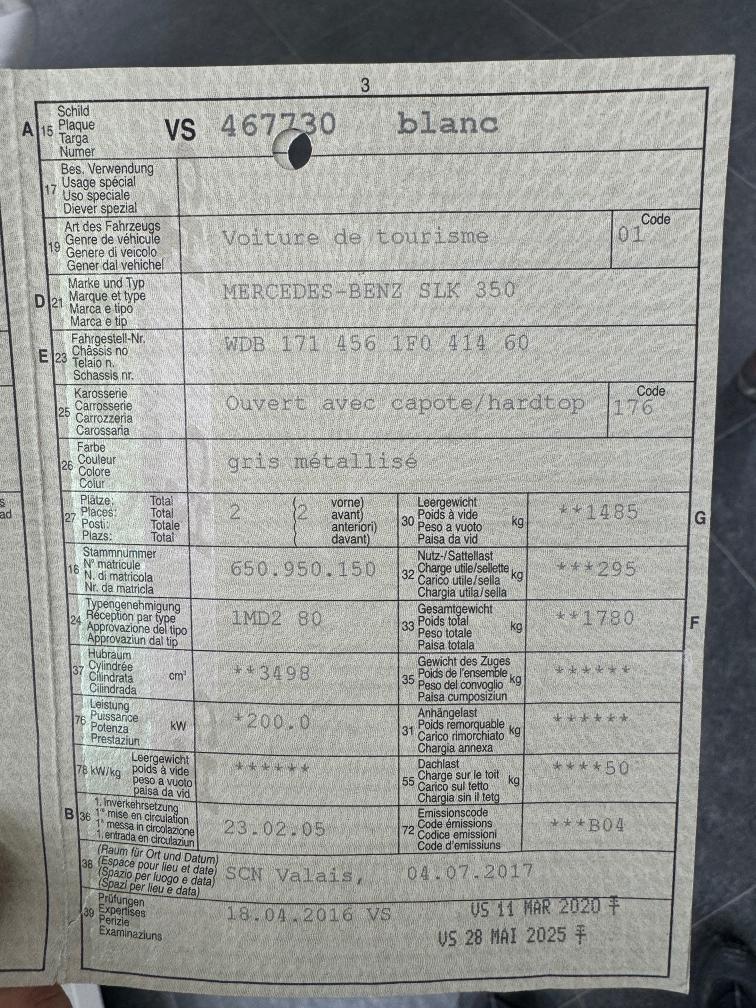 3
A 15 Schild VS 467730 blanc
Plaque
Targa
Numer
17 Bes. Verwendung
Usage spécial
Uso speciale
Diever spezial
19 Art des Fahrzeugs Voiture de tourisme Code 01
Genre de véhicule
Genere di veicolo
Gener dal vehichel
D 21 Marke und Typ MERCEDES-BENZ SLK 350
Marque et type
Marca e tipo
Marca e tip
E 23 Fahrgestell-Nr. WDB 171 456 1F0 414 60
Châssis no
Telaio n.
Schassis nr.
25 Karosserie Ouvert avec capote/hardtop Code 176
Carrosserie
Carrozzeria
Carossaria
26 Farbe gris métallisé
Couleur
Colore
Colur
27 Plätze: Total 2 (2 vorne)
Places: Total avant)
Posti: Totale anteriori)
Plazs: Total davant)
30 Leergewicht kg **1485 G
Poids à vide
Peso a vuoto
Paisa da vid
18 Stammnummer 650.950.150
N° matricule
N. di matricola
Nr. da matricla
32 Nutz-/Sattellast kg ***295
Charge utile/sellette
Carico utile/sella
Chargia utila/sella
24 Typengenehmigung 1MD2 80
Réception par type
Approvazione del tipo
Approvaziun dal tip
33 Gesamtgewicht kg **1780 F
Poids total
Peso totale
Paisa totala
37 Hubraum cm³ **3498
Cylindrée
Cilindrata
Cilindrada
35 Gewicht des Zuges kg ******
Poids de l'ensemble
Peso del convoglio
Paisa cumposiziun
76 Leistung kW *200.0
Puissance
Potenza
Prestaziun
31 Anhängelast kg ******
Poids remorquable
Carico rimorchiato
Chargia annexa
78 kW/kg Leergewicht ******
poids à vide
peso a vuoto
paisa da vid
55 Dachlast kg ****50
Charge sur le toit
Carico sul tetto
Chargia sin il tetg
B 36 1. Inverkehrsetzung 23.02.05
1re mise en circulation
1a messa in circolazione
1. entrada en circulaziun
72 Emissionscode ***B04
Code émissions
Codice emissioni
Code d'emissiuns
38 (Raum für Ort und Datum) SCN Valais, 04.07.2017
(Espace pour lieu et date)
(Spazio per luogo e data)
(Spazi per lieu e data)
39 Prüfungen 18.04.2016 VS VS 11 MAR 2020
Expertises VS 28 MAI 2025
Perizie
Examinaziuns